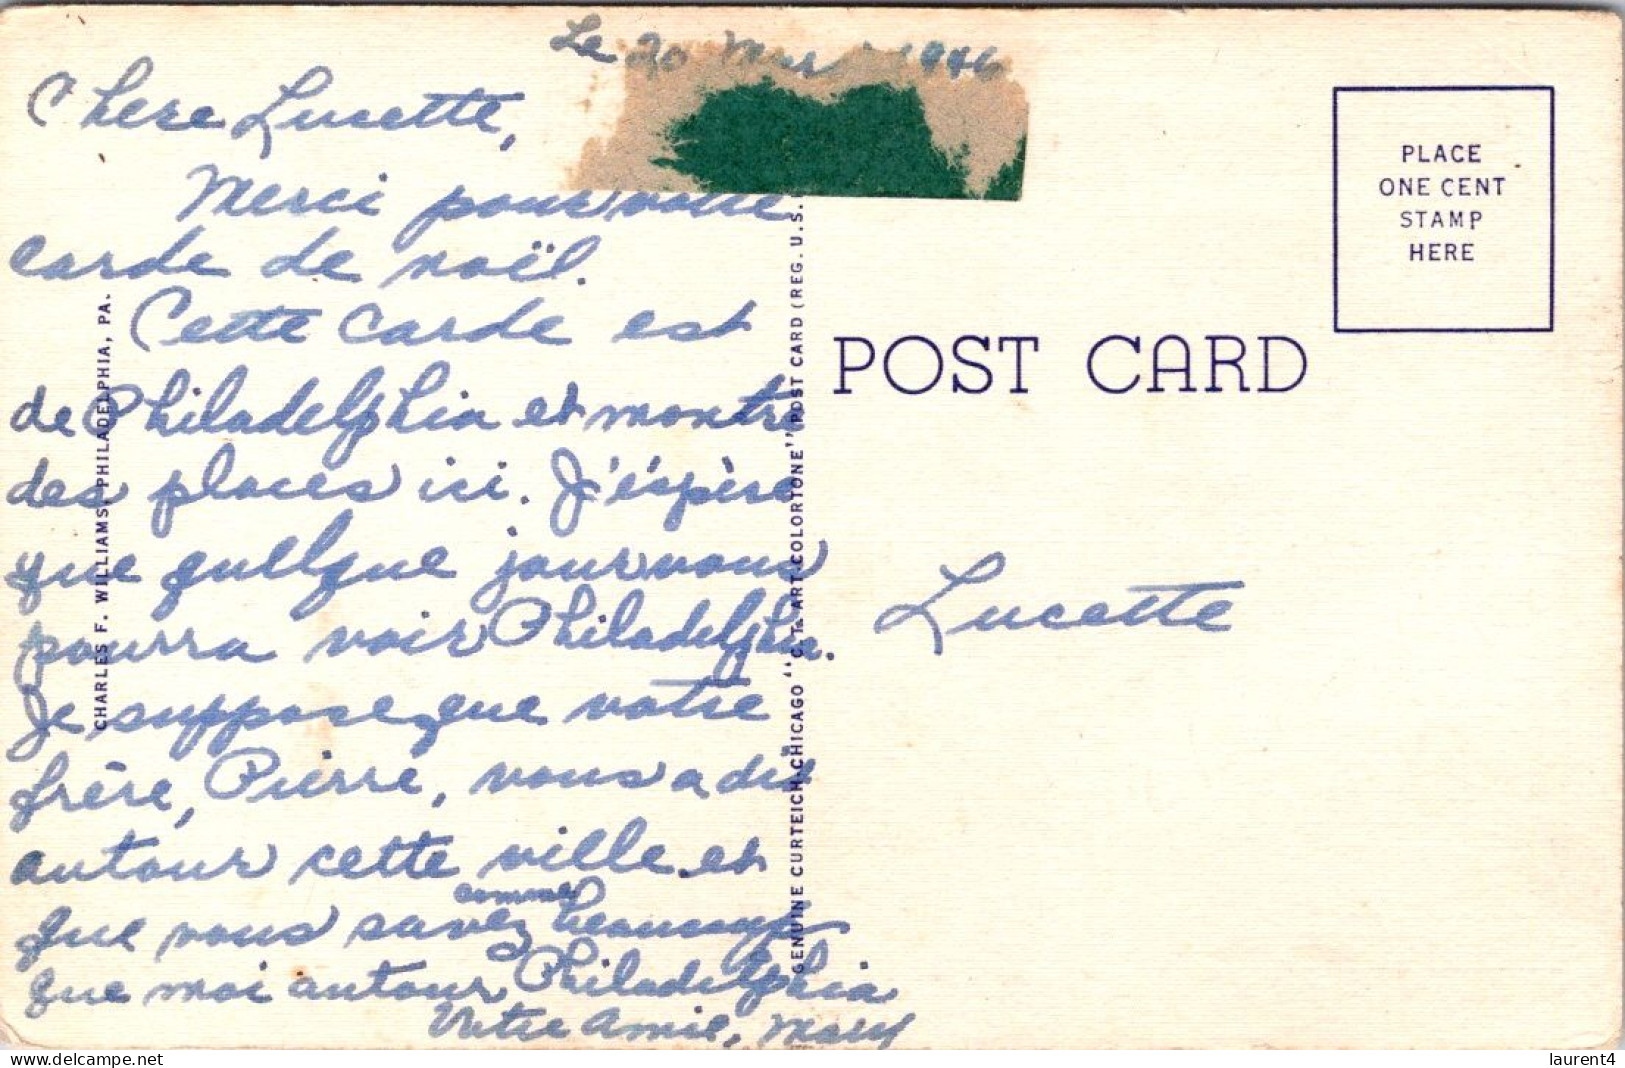 Le 20 Mars 1946
Chere Lucette,
Merci pour votre
carde de noël.
Cette carde est
de Philadelphia et montre
des places ici. J'éspère
que quelque jour vous
pourra voir Philadelphia.
Je suppose que votre
frère, Pierre, vous a dit
autour cette ville et
que vous savez comme beaucoup
que moi autour Philadelphia
Votre Amie, Mary
CHARLES F. WILLIAMS, PHILADELPHIA, PA.
GENUINE CURTEICH-CHICAGO "C.T. ART-COLORTONE" POST CARD (REG. U.S.
POST CARD
PLACE
ONE CENT
STAMP
HERE
Lucette
laurent4